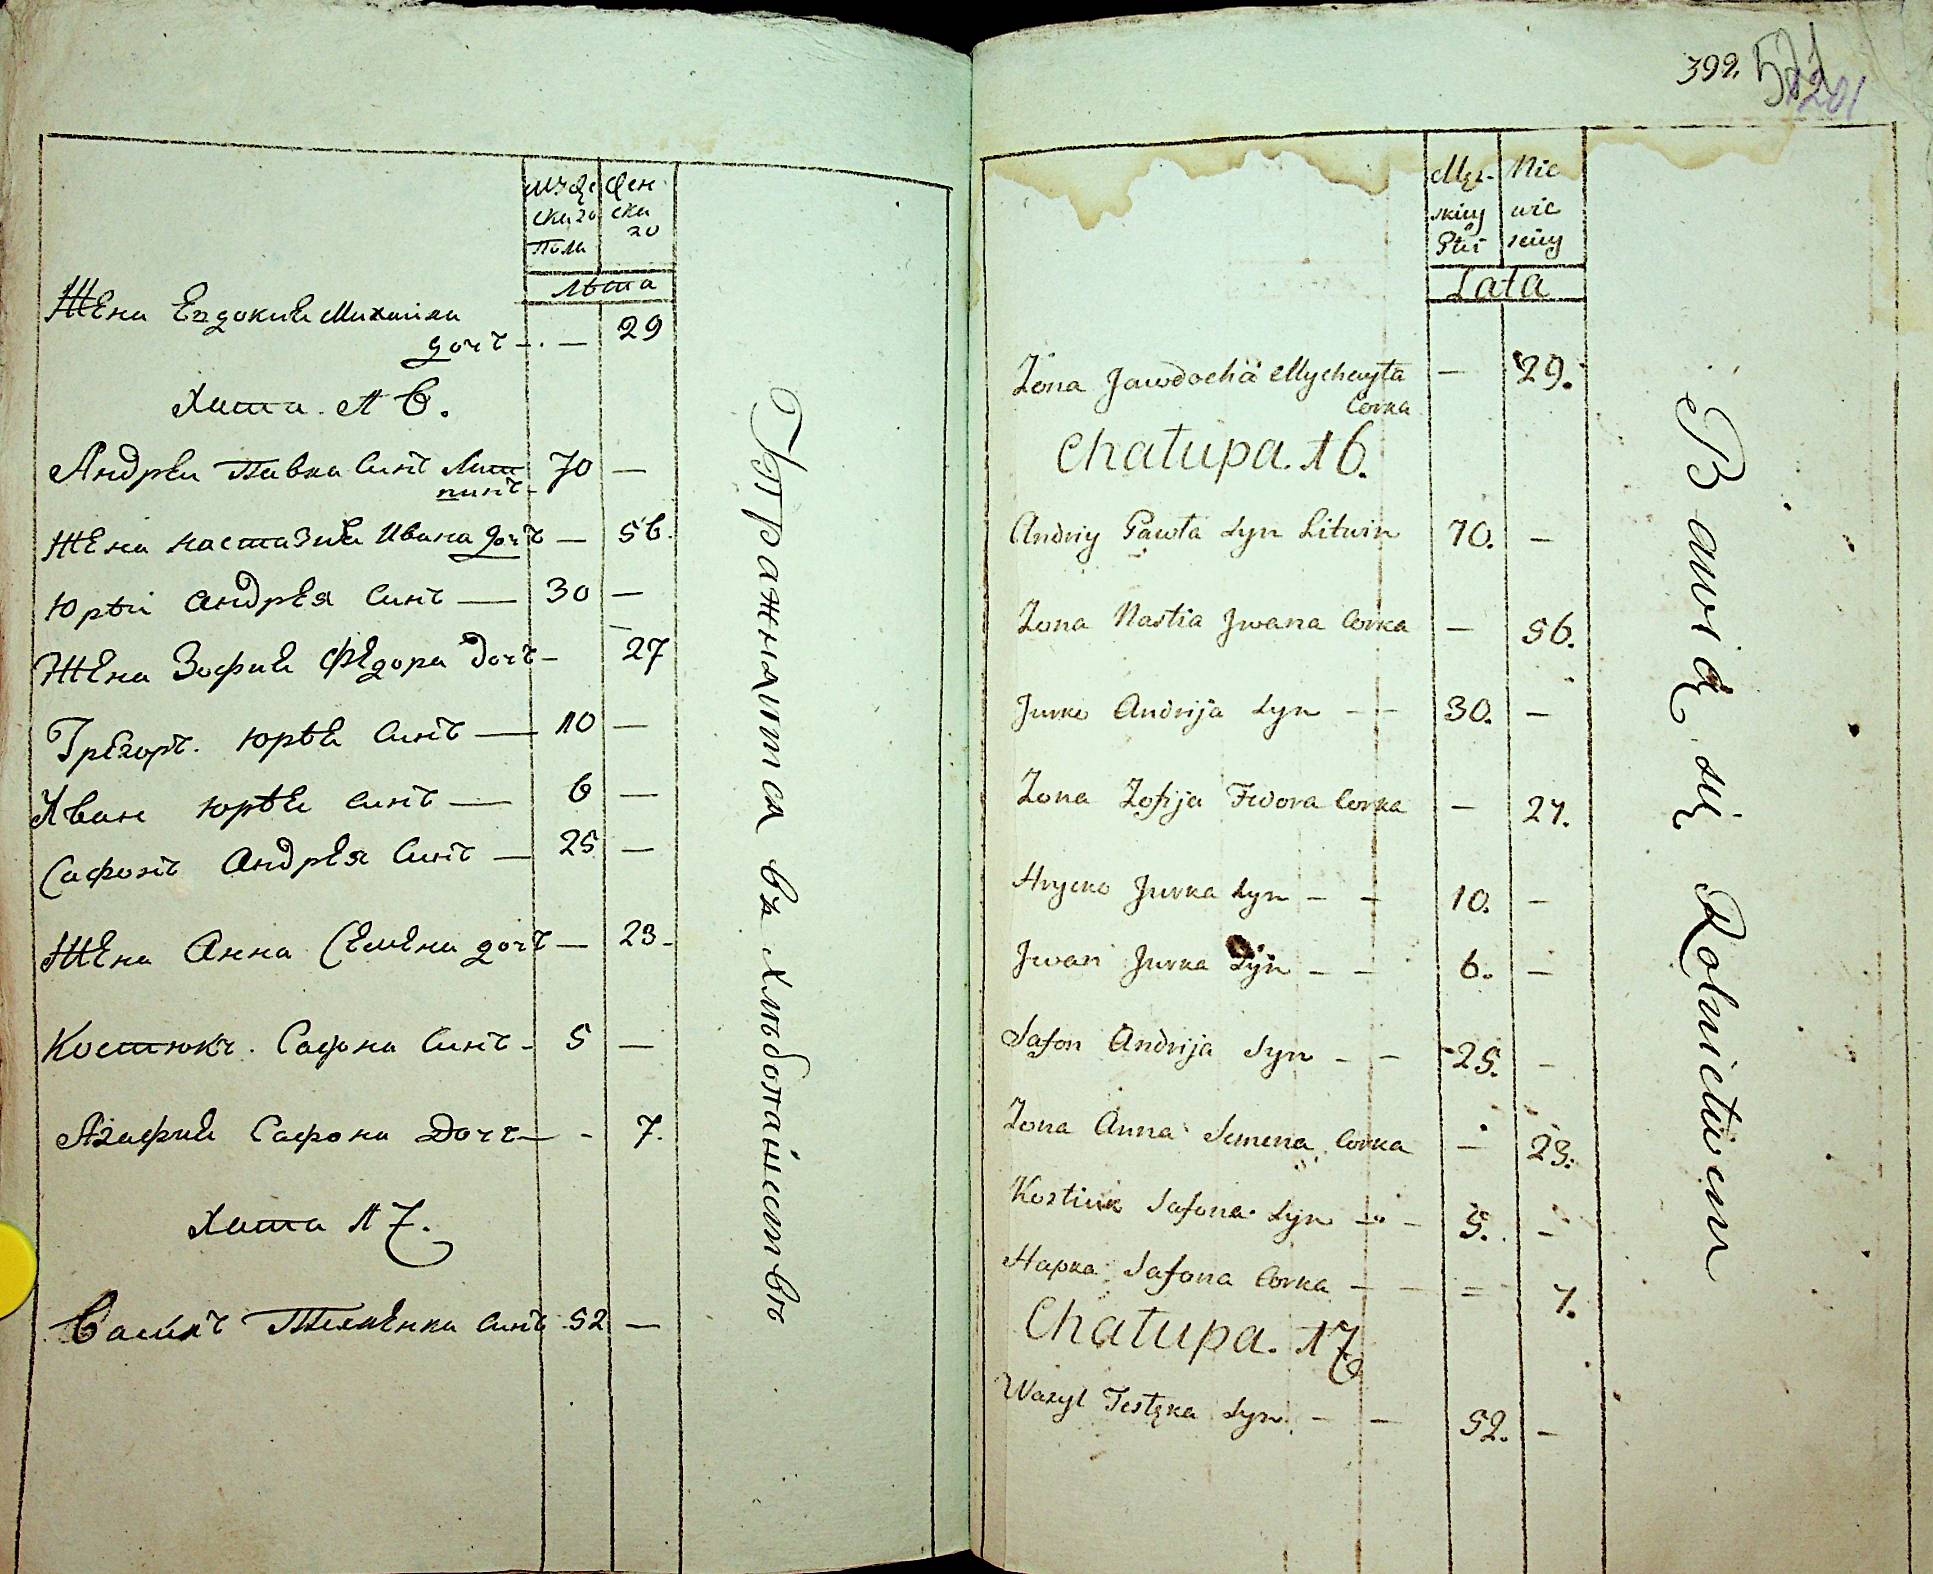 Мужескаго Пола
Женскаго
Лѣта
Жена Евдокия Михаила
дочъ - . — 29
Хата. 16.
Андреи Павла Синъ Лит
винъ - 70 —
Жена Настазия Ивана дочъ — 56.
Юрѣи Андрея Синъ — 30 —
Жена Зофия Федора Дочъ — 27
Грегоръ. Юрѣя Синъ — 10 —
Иван Юрѣя Синъ — 6 —
Сафонъ Андрея Синъ — 25 —
Жена Анна Семена дочъ — 23 -
Костюкъ. Сафона Синъ - 5 —
Агафия Сафона Дочъ — - 7.
Хата 17.
Василъ Синъ 52 —
Упражняится въ хлѣбопашествѣ
392.
Męz-
skiey
Płci
Nie
wie
sciey
Lata
Zona Jawdocha Mychayła — 29.
Corka
Chałupa. 16.
Andriy Pawła Syn Litwin 70. —
Zona Nastia Jwana Corka — 56.
Jurko Andrija Syn — — 30. —
Zona Zofija Fedora Corka — 27.
Hrycko Jurka Syn — — 10. —
Jwan Jurka Syn — — 6. —
Safon Andrija Syn — — 25. —
Zona Anna Semena Corka — 23.
Kostiuk Safona Syn — — 5. —
Hapka Safona Corka — — = 7.
Chałupa. 17
Wasyl Syn. — — 52. —
Bawią się Rolnictwem